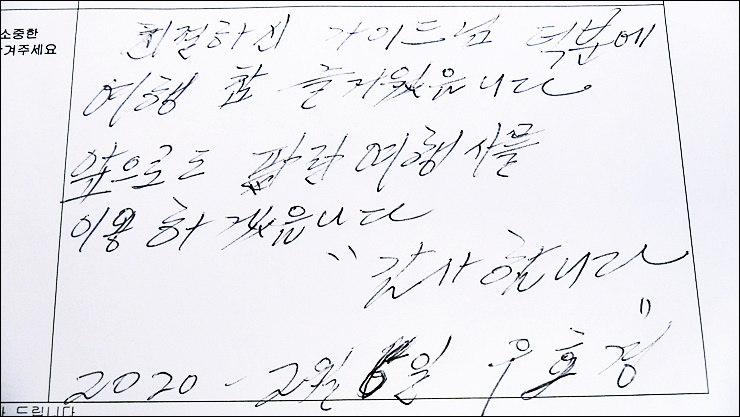 소중한
겨주세요
친절하신 가이드님 덕분에
여행 참 즐거웠읍니다
앞으로도 파란여행사를
이용하겠읍니다
"감사합니다"
2020-2월 6일
드립니다